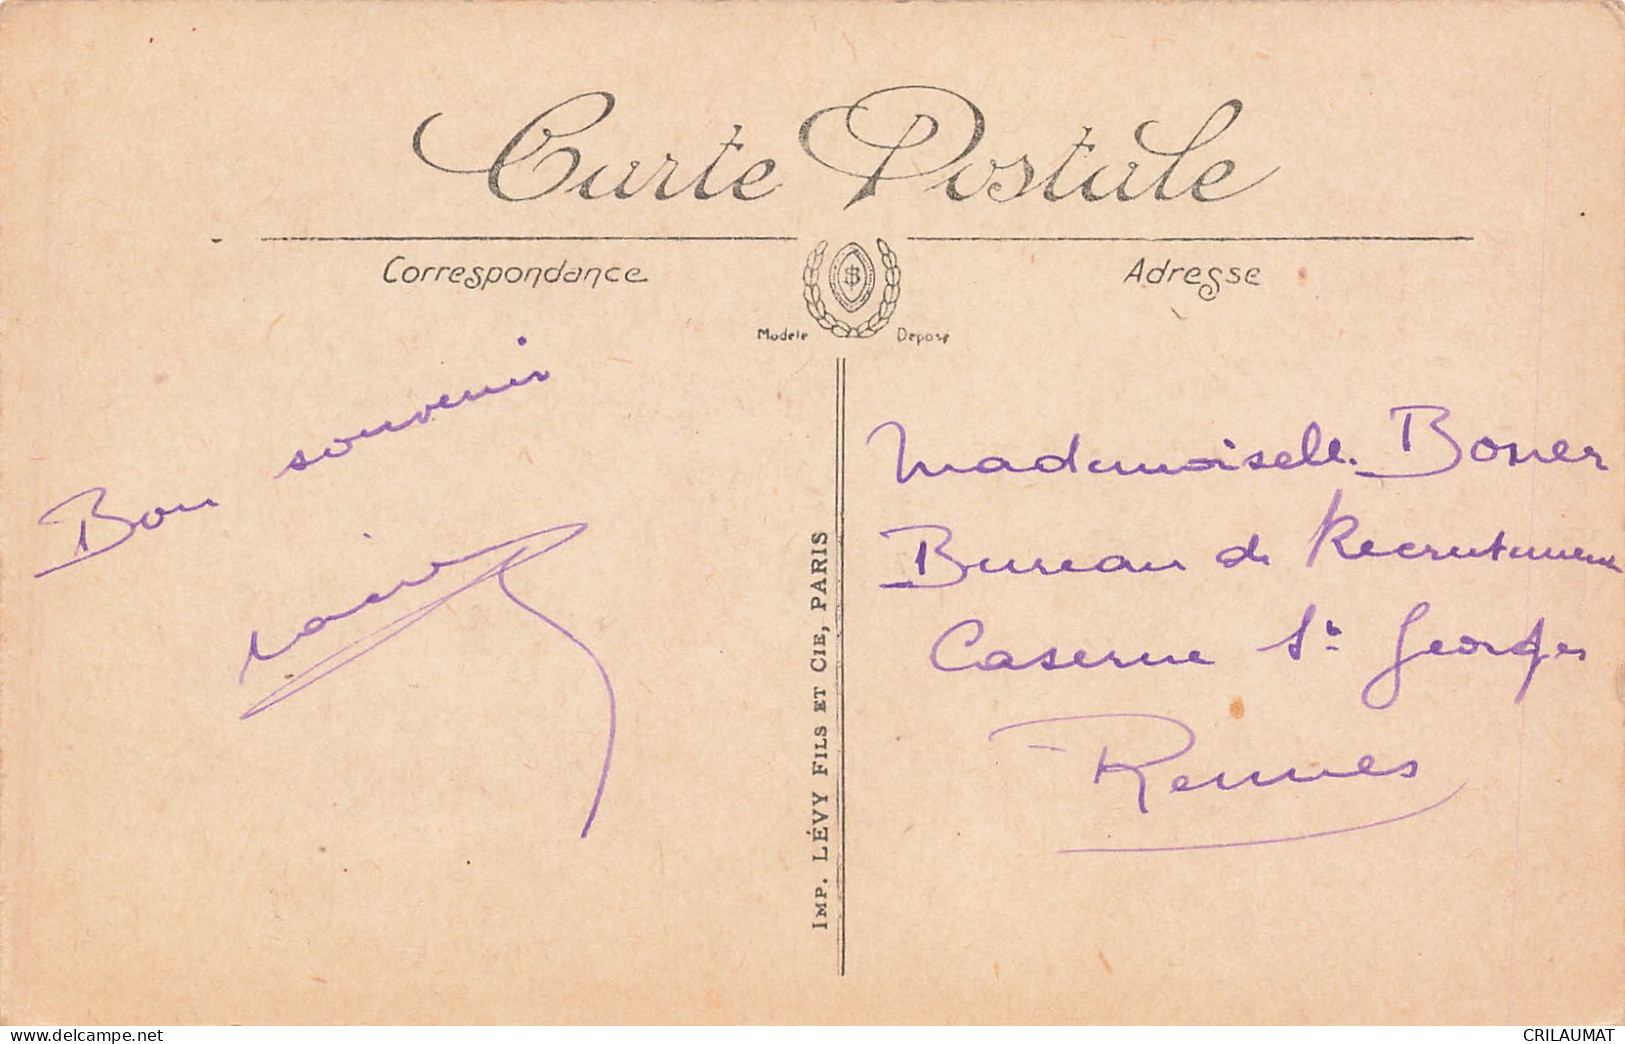 Carte Postale
Correspondance
Adresse
Modèle Déposé
Bon souvenir
IMP. LÉVY FILS ET CIE, PARIS
Mademoiselle
Bureau de Recrutement
Caserne St Georges
Rennes
www.delcampe.net
CRILAUMAT